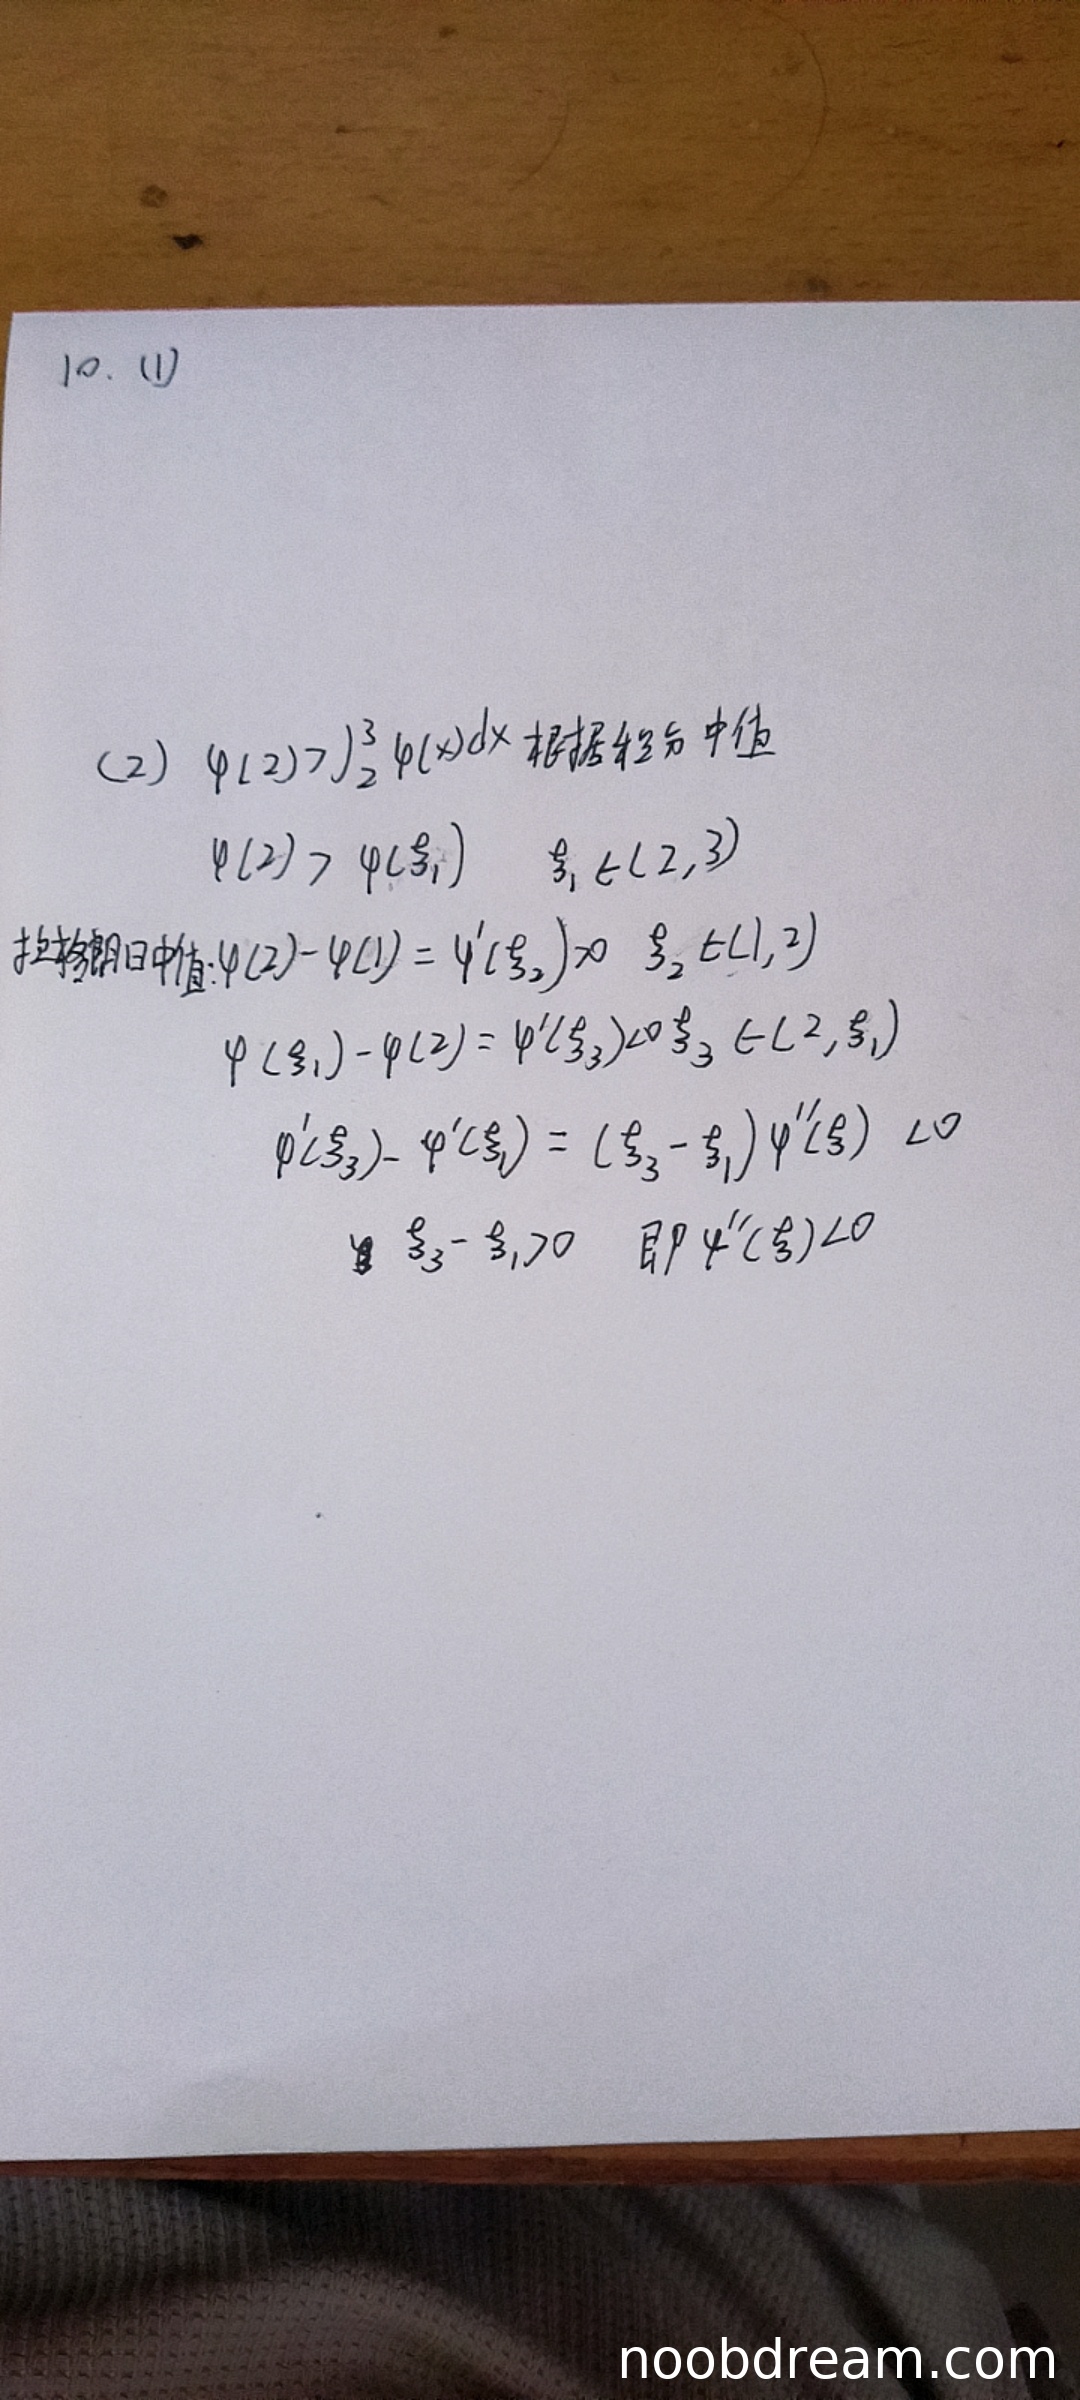 10. (1)
(2) φ(2)>∫₂³ φ(x)dx 根据积分中值
φ(2) > φ(ξ₁) ξ₁∈(2,3)
拉格朗日中值:φ(2)-φ(1) = φ'(ξ₂)>0 ξ₂∈(1,2)
φ(ξ₁)-φ(2) = φ'(ξ₃)<0 ξ₃∈(2,ξ₁)
φ'(ξ₃)-φ'(ξ₁) = (ξ₃-ξ₁)φ''(ξ) <0
ξ₃-ξ₁>0 即φ''(ξ)<0
noobdream.com